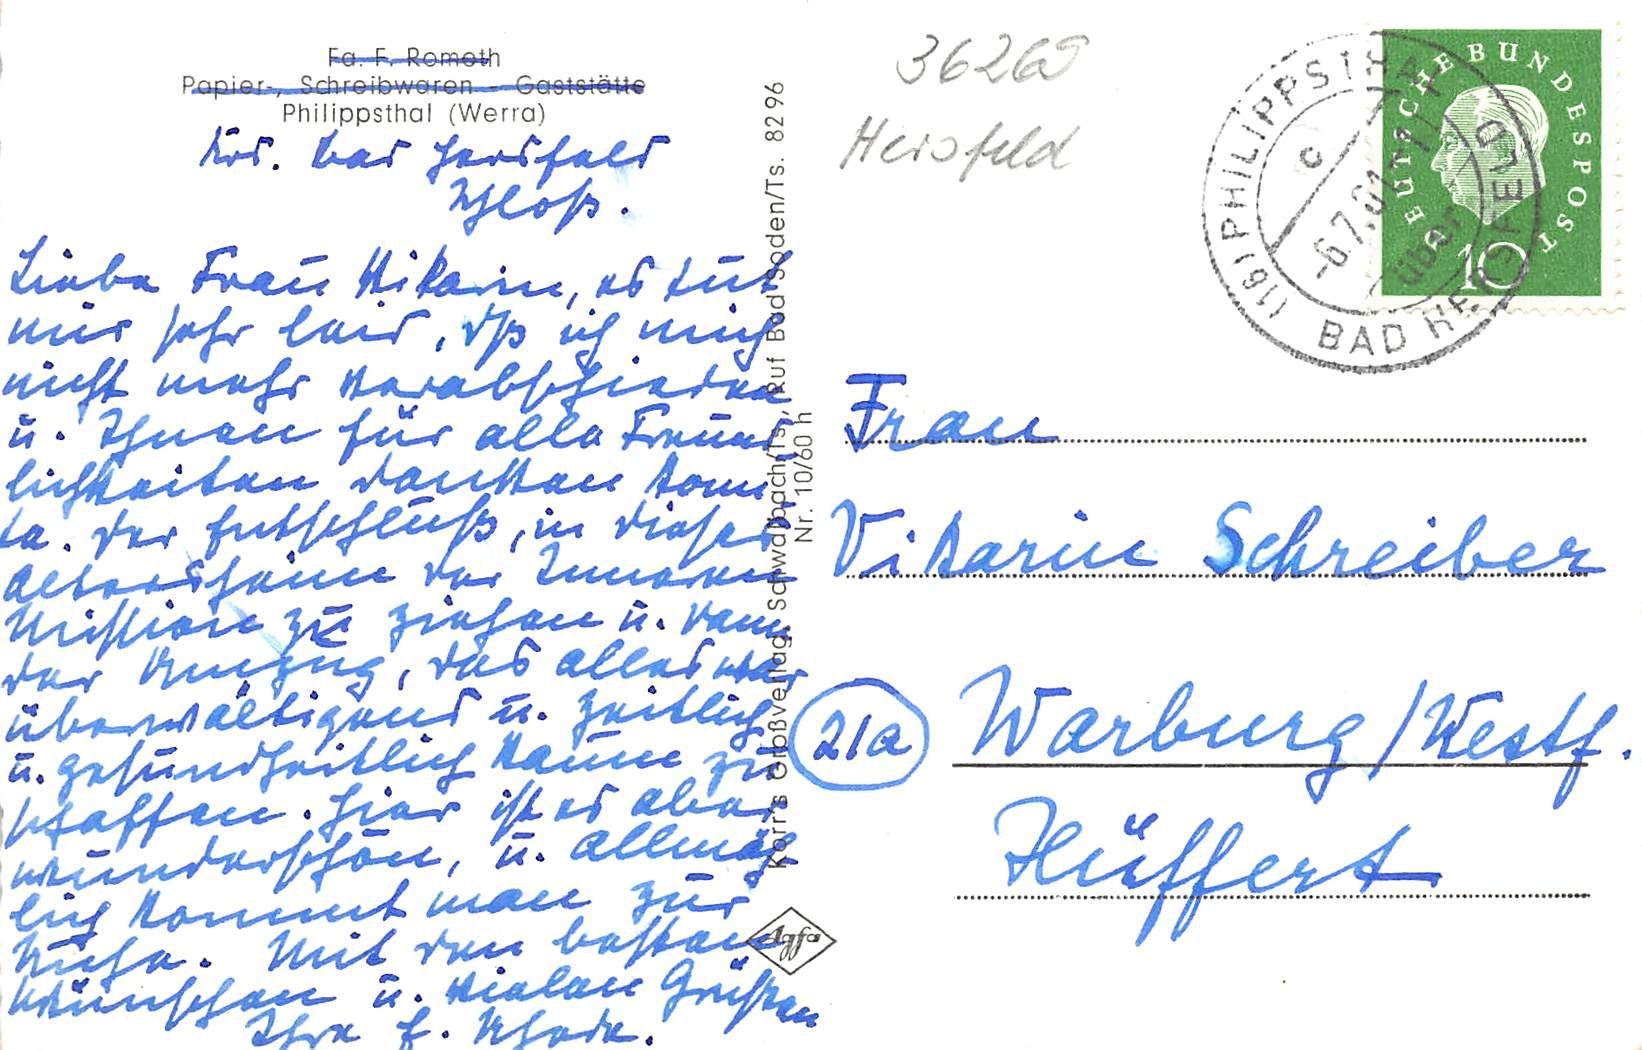 Fa. F. Rometh
Papier-, Schreibwaren - Gaststätte
Philippsthal (Werra)
Krs. Bad Hersfeld
Schloß.
Liebe Frau Vikarin, es tut
mir sehr leid, dß ich mich
nicht mehr verabschieden
u. Ihnen für alle Freund-
lichkeiten danken konn-
te. Der Entschluß, in dieses
Altersheim der Inneren
Mission zu ziehen u. dann
der Umzug, das alles war
überwältigend u. zeitlich
u. gesundheitlich kaum zu
schaffen. Hier ist es aber
wunderschön, u. allmäh-
lich kommt man zur
Ruhe. Mit den besten
Wünschen u. vielen Grüßen
Ihre
Korr's Großverlag Schwalbach/Ts., Ruf Bad Soden/Ts. 82 96
Nr. 10/60 h
Agfa
Hersfeld
(16) PHILIPPSTHAL
über
BAD HERSFELD
c
-6.7.61
DEUTSCHE BUNDESPOST
10
Frau
Vikarin Schreiber
21a
Warburg/Westf.
Hüffert